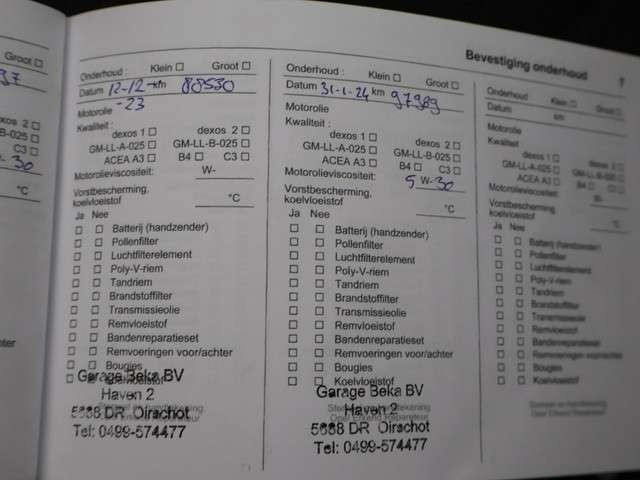 Bevestiging onderhoud 7
Groot ☐
97
dexos 2 ☐
B-025 ☐
C3 ☐
- 30
°C
Onderhoud : Klein ☐ Groot ☐
Datum 12-12-23 km 88530
Motorolie
Kwaliteit :
dexos 1 ☐ dexos 2 ☐
GM-LL-A-025 ☐ GM-LL-B-025 ☐
ACEA A3 ☐ B4 ☐ C3 ☐
Motorolieviscositeit: W-
Vorstbescherming,
koelvloeistof °C
Ja Nee
☐ ☐ Batterij (handzender)
☐ ☐ Pollenfilter
☐ ☐ Luchtfilterelement
☐ ☐ Poly-V-riem
☐ ☐ Tandriem
☐ ☐ Brandstoffilter
☐ ☐ Transmissieolie
☐ ☐ Remvloeistof
☐ ☐ Bandenreparatieset
☐ ☐ Remvoeringen voor/achter
☐ ☐ Bougies
☐ ☐ Koelvloeistof
Garage Beka BV
Haven 2
5688 DR Oirschot
Tel: 0499-574477
Onderhoud : Klein ☐ Groot ☐
Datum 31-1-24 km 97989
Motorolie
Kwaliteit :
dexos 1 ☐ dexos 2 ☐
GM-LL-A-025 ☐ GM-LL-B-025 ☐
ACEA A3 ☐ B4 ☐ C3 ☐
Motorolieviscositeit: 5 W-30
Vorstbescherming,
koelvloeistof °C
Ja Nee
☐ ☐ Batterij (handzender)
☐ ☐ Pollenfilter
☐ ☐ Luchtfilterelement
☐ ☐ Poly-V-riem
☐ ☐ Tandriem
☐ ☐ Brandstoffilter
☐ ☐ Transmissieolie
☐ ☐ Remvloeistof
☐ ☐ Bandenreparatieset
☐ ☐ Remvoeringen voor/achter
☐ ☐ Bougies
☐ ☐ Koelvloeistof
Garage Beka BV
Haven 2
5688 DR Oirschot
Tel: 0499-574477
Onderhoud : Klein ☐ Groot ☐
Datum km
Motorolie
Kwaliteit :
dexos 1 ☐ dexos 2 ☐
GM-LL-A-025 ☐ GM-LL-B-025 ☐
ACEA A3 ☐ B4 ☐ C3 ☐
Motorolieviscositeit: W-
Vorstbescherming,
koelvloeistof °C
Ja Nee
☐ ☐ Batterij (handzender)
☐ ☐ Pollenfilter
☐ ☐ Luchtfilterelement
☐ ☐ Poly-V-riem
☐ ☐ Tandriem
☐ ☐ Brandstoffilter
☐ ☐ Transmissieolie
☐ ☐ Remvloeistof
☐ ☐ Bandenreparatieset
☐ ☐ Remvoeringen voor/achter
☐ ☐ Bougies
☐ ☐ Koelvloeistof
Stempel en handtekening
Opel Erkend Reparateur